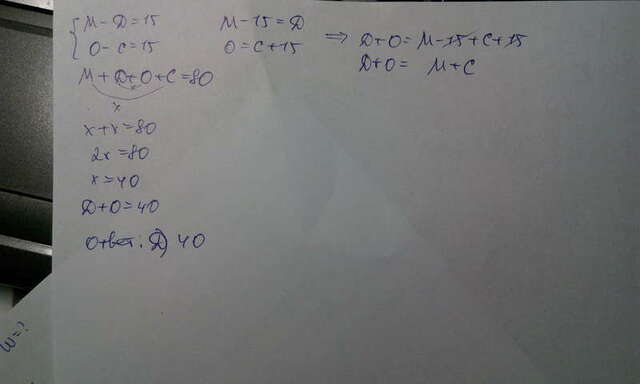 М-Д=15
О-С=15
М-15=Д
О=С+15
⇒ Д+О=М-15+С+15
Д+О= М+С
М+Д+О+С=80
x x
x+x=80
2x=80
x=40
Д+О=40
Ответ: Д) 40
W=?